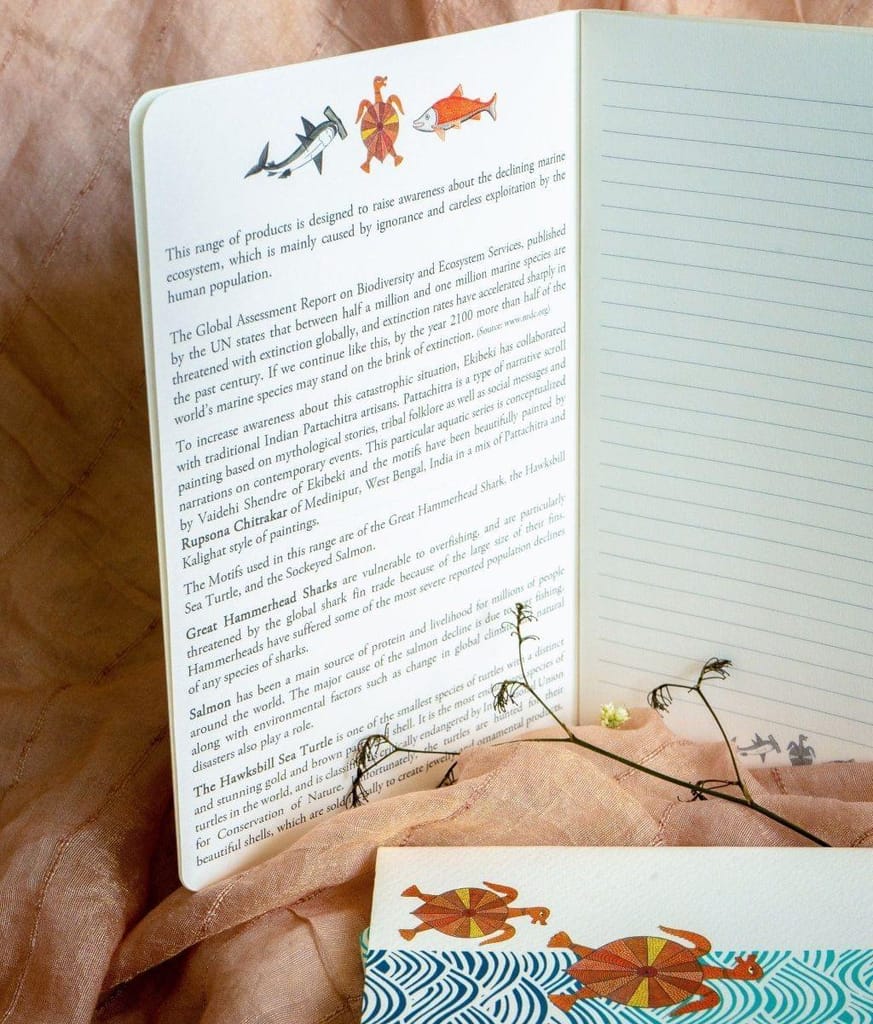 This range of products is designed to raise awareness about the declining marine
ecosystem, which is mainly caused by ignorance and careless exploitation by the
human population.
The Global Assessment Report on Biodiversity and Ecosystem Services, published
by the UN states that between half a million and one million marine species are
threatened with extinction globally, and extinction rates have accelerated sharply in
the past century. If we continue like this, by the year 2100 more than half of the
world's marine species may stand on the brink of extinction. (Source: www.nrdc.org)
To increase awareness about this catastrophic situation, Ekibeki has collaborated
with traditional Indian Pattachitra artisans. Pattachitra is a type of narrative scroll
painting based on mythological stories, tribal folklore as well as social messages and
narrations on contemporary events. This particular aquatic series is conceptualized
by Vaidehi Shendre of Ekibeki and the motifs have been beautifully painted by
Rupsona Chitrakar of Medinipur, West Bengal, India in a mix of Pattachitra and
Kalighat style of paintings.
The Motifs used in this range are of the Great Hammerhead Shark, the Hawksbill
Sea Turtle, and the Sockeyed Salmon.
Great Hammerhead Sharks are vulnerable to overfishing, and are particularly
threatened by the global shark fin trade because of the large size of their fins.
Hammerheads have suffered some of the most severe reported population declines
of any species of sharks.
Salmon has been a main source of protein and livelihood for millions of people
around the world. The major cause of the salmon decline is due to fishing,
along with environmental factors such as change in global natural
disasters also play a role.
The Hawksbill Sea Turtle is one of the smallest species of turtles with distinct
and stunning gold and brown shell. It is the most species of
turtles in the world, and is endangered by Union
for Conservation of Nature. the turtles are hunted for their
beautiful shells, which are sold to create and ornamental products.